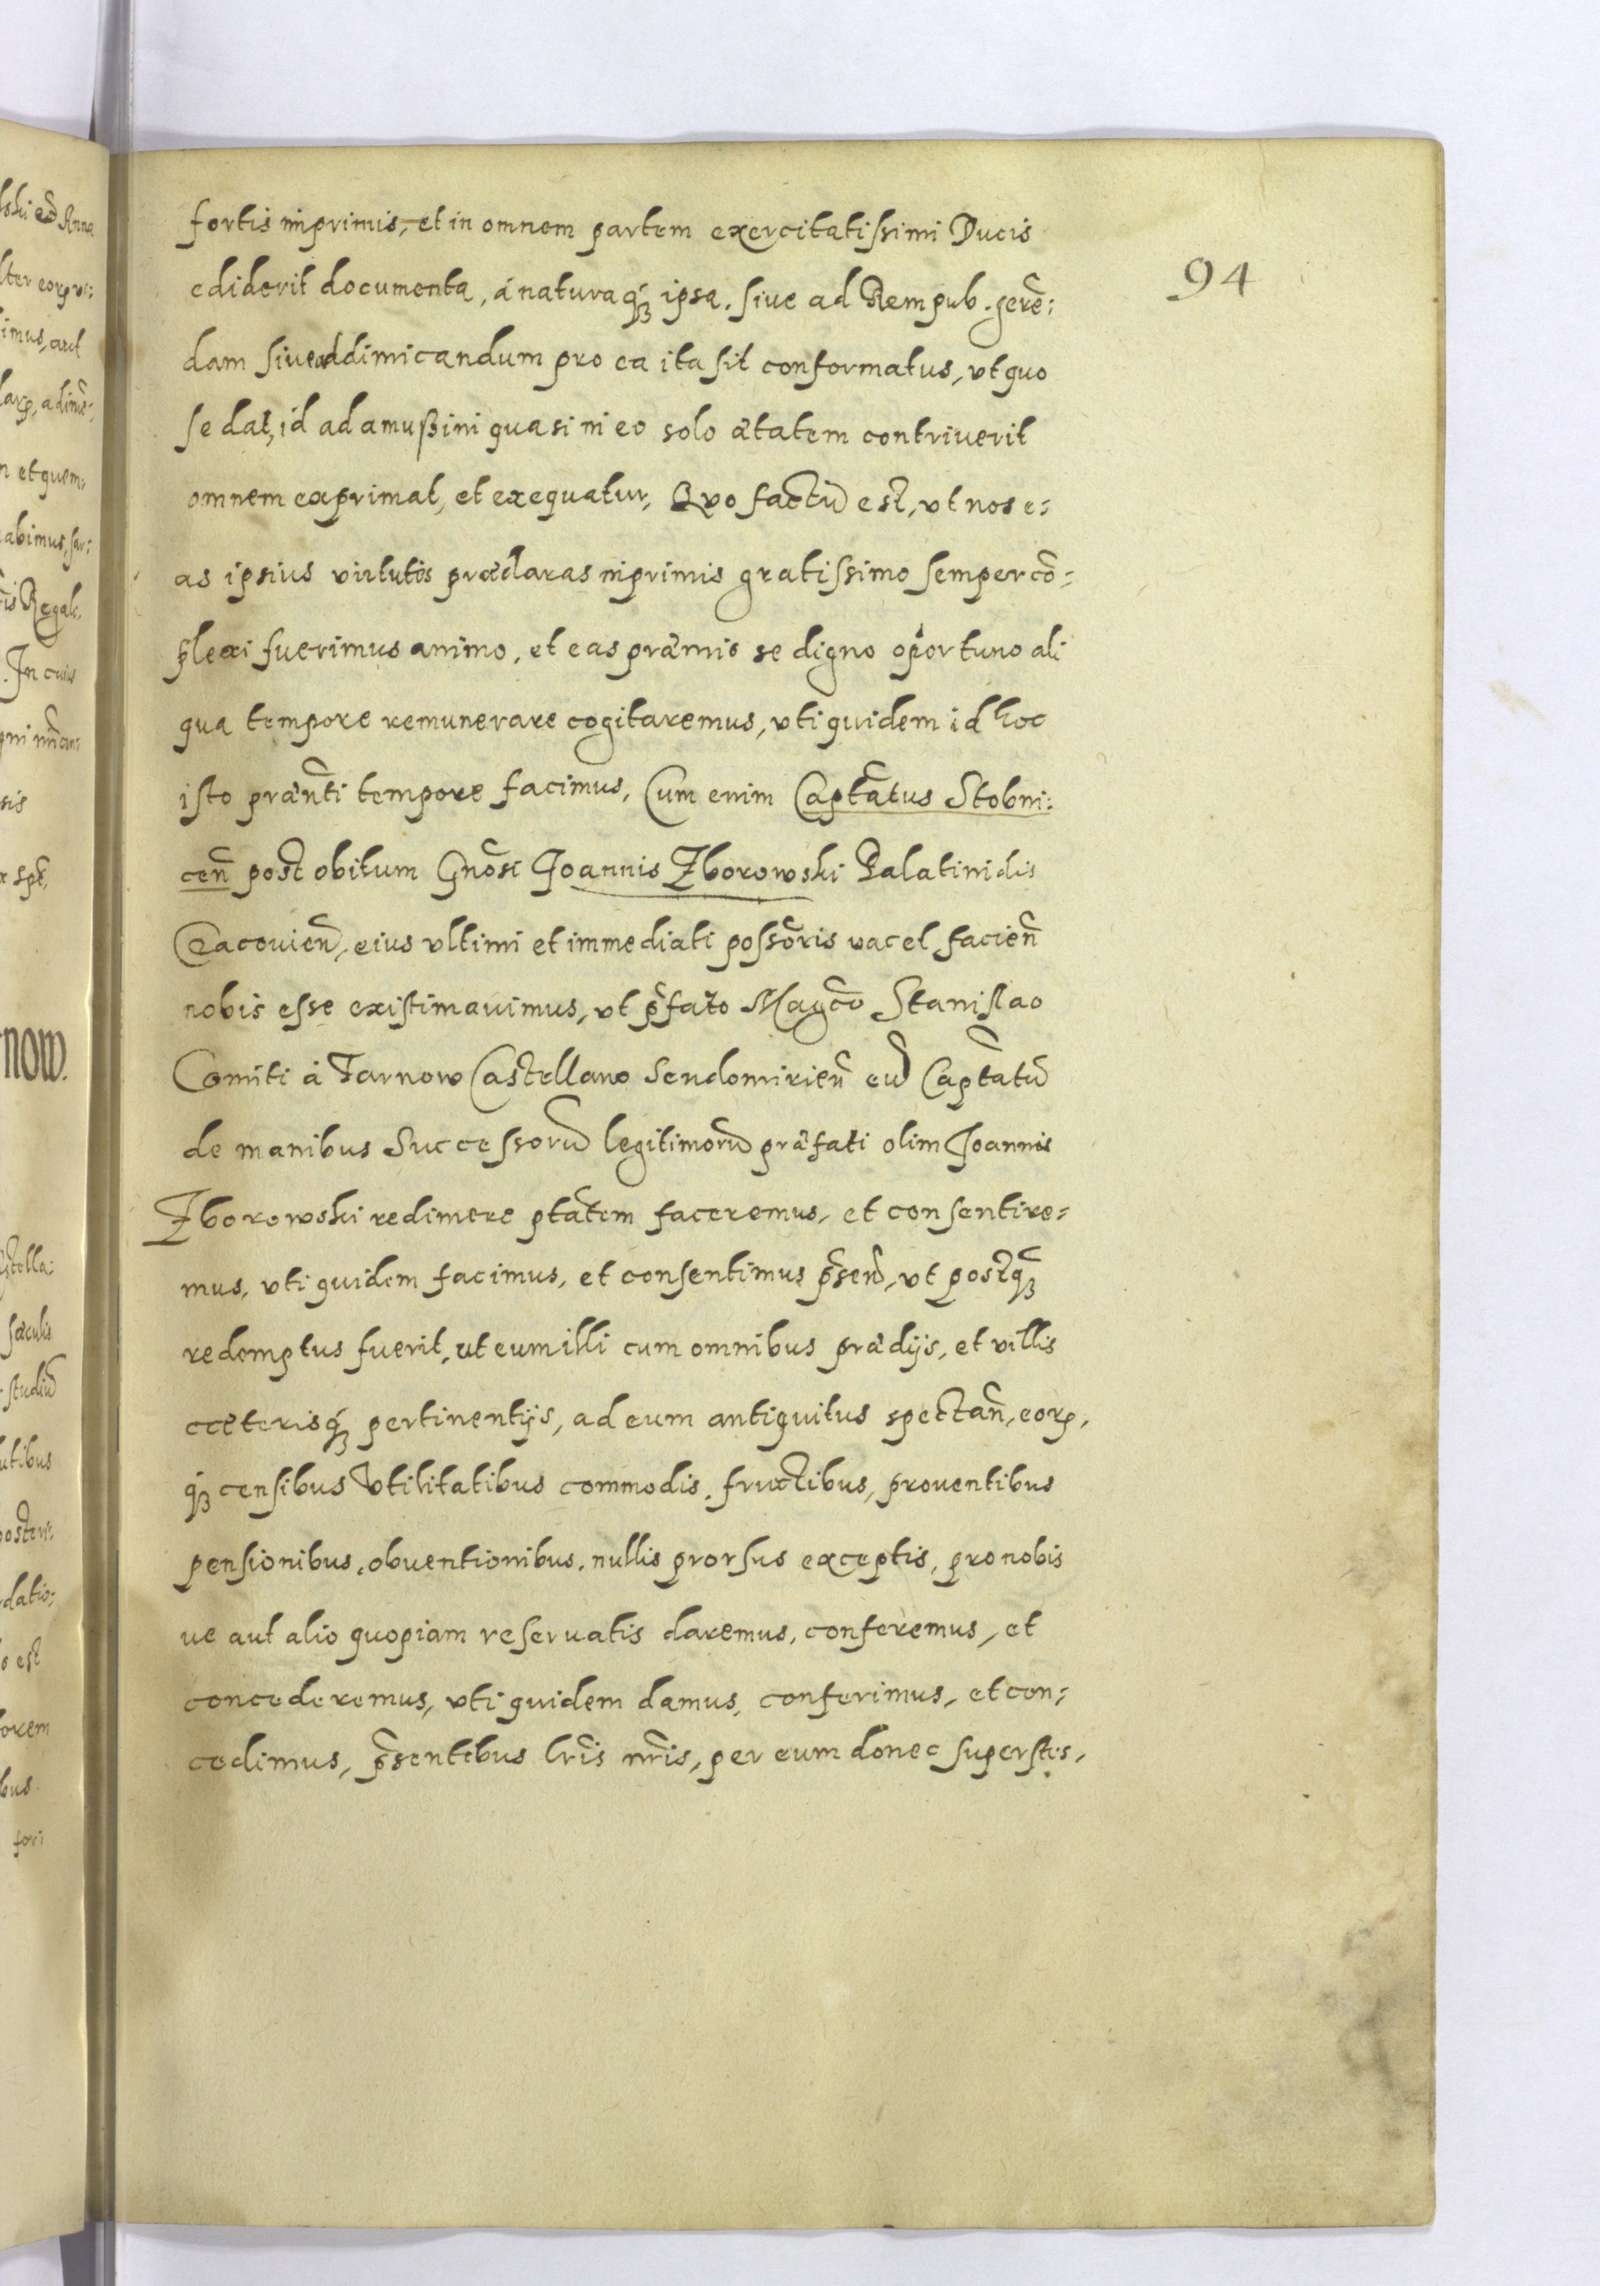 94
fortis inprimis, et in omnem partem exercitatissimi Ducis
ediderit documenta, á naturaqꝫ ipsa, siue ad Rempub. gerē:
dam siue addimicandum pro ea ita sit conformatus, vt quo
se dat, id ad amußim quasi in eo solo ætatem contriuerit
omnem exprimat, et exequatur, Quo factū est, vt nos e:
as ipsius virtutes præclaras inprimis gratissimo semper cō:
plexi fuerimus animo, et eas præmio se digno oportuno ali
qua tempore remunerare cogitaremus, vti quidem id hoc
isto præn̄ti tempore facimus, Cum enim Capt̄atus Stobni:
cen̄ post obitum Gn̄osi Joannis Zborowski Palatinidis
Cracouien̄, eius vltimi et immediati poss̄oris vacet facien̄
nobis esse existimauimus, vt p̄fato Magc̄o Stanislao
Comiti á Tarnow Castellano Sendomirien̄ eū Capt̄atū
de manibus Successorū legitimorū præfati olim Joannis
Zborowski redimere pt̄atem faceremus, et consentire:
mus, vti quidem facimus, et consentimus p̄sen̄, vt postqꝫ̄
redemptus fuerit, ut eum illi cum omnibus prædijs, et villis
cæterisqꝫ pertinentijs, ad eum antiquitus spectan̄, eorꝝ,
qꝫ censibus Vtilitatibus commodis, fructibus, prouentibus
pensionibus, obuentionibus, nullis prorsus exceptis, pro nobis
ue aut alio quopiam reseruatis daremus, conferemus, et
concederemus, vti quidem damus, conferimus, et con:
cedimus, p̄sentibus lr̄is nr̄is, per eum donec superstes,